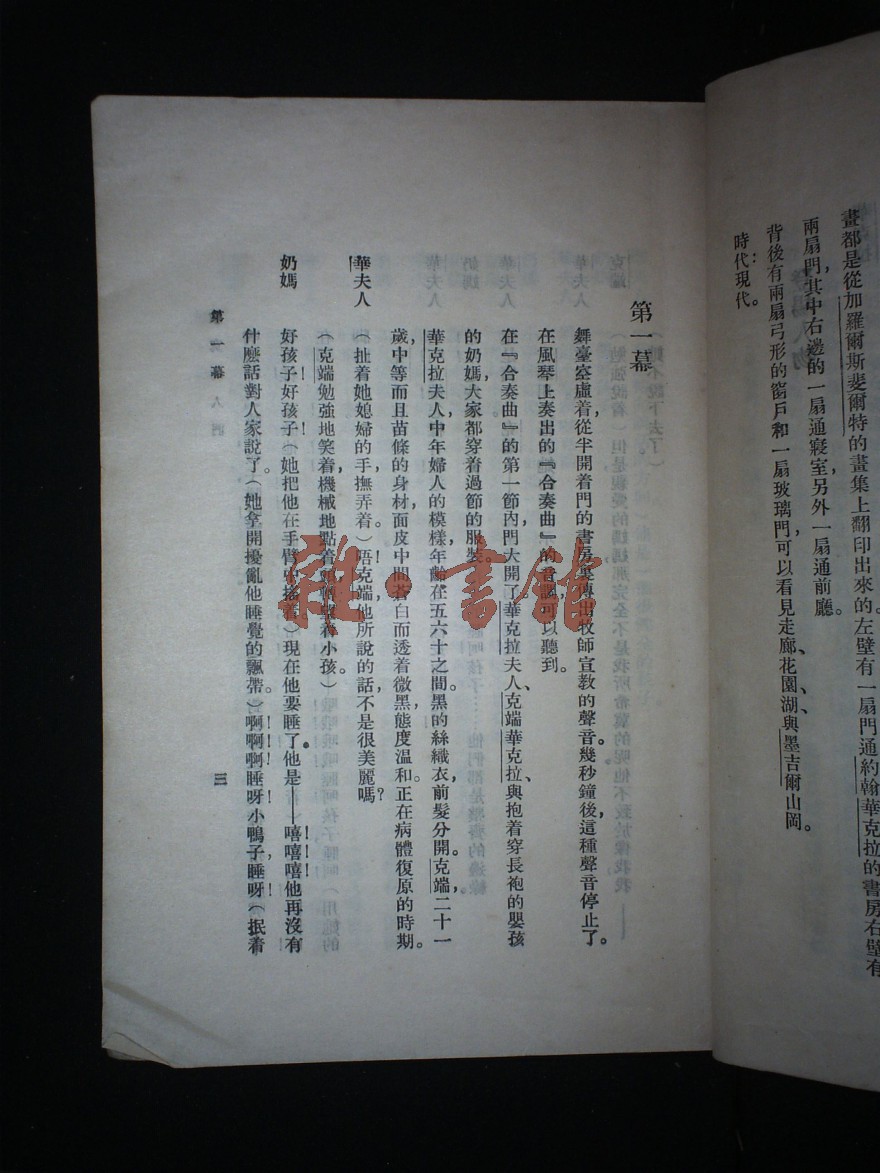 畫都是從加羅爾斯斐爾特的畫集上翻印出來的。左壁有一扇門通約翰華克拉的書房右壁有
兩扇門，其中右邊的一扇通寢室另外一扇通前廳。
背後有兩扇弓形的窗戶和一扇玻璃門，可以看見走廊、花園、湖、與墨吉爾山岡。
時代：現代。
第一幕
舞臺空虛着，從半開着門的書房裏傳出牧師宣教的聲音。幾秒鐘後，這種聲音停止了。
在風琴上奏出的『合奏曲』的音調可以聽到。
在『合奏曲』的第一節內，門大開了，華克拉夫人、克端華克拉、與抱着穿長袍的嬰孩
的奶媽，大家都穿着過節的服裝。
華克拉夫人，中年婦人的模樣，年齡在五六十之間。黑的絲織衣，前髮分開。克端，二十一
歲，中等而且苗條的身材，面皮中間蒼白而透着微黑，態度溫和。正在病體復原的時期。
華夫人　（扯着她媳婦的手，撫弄着。）唔！克端，他所說的話不是很美麗嗎？
（克端勉強地笑着，機械地點着頭，着小孩。）
奶媽　好孩子！好孩子！（她把他在手臂中搖着。）現在他要睡了。他是——嘻！嘻！嘻！他再沒有
什麼話對人家說了。（她拿開擾亂他睡覺的飄帶。）啊！啊！啊！睡呀，小鴨子，睡呀！（抿着
第一幕
三
雜·書館